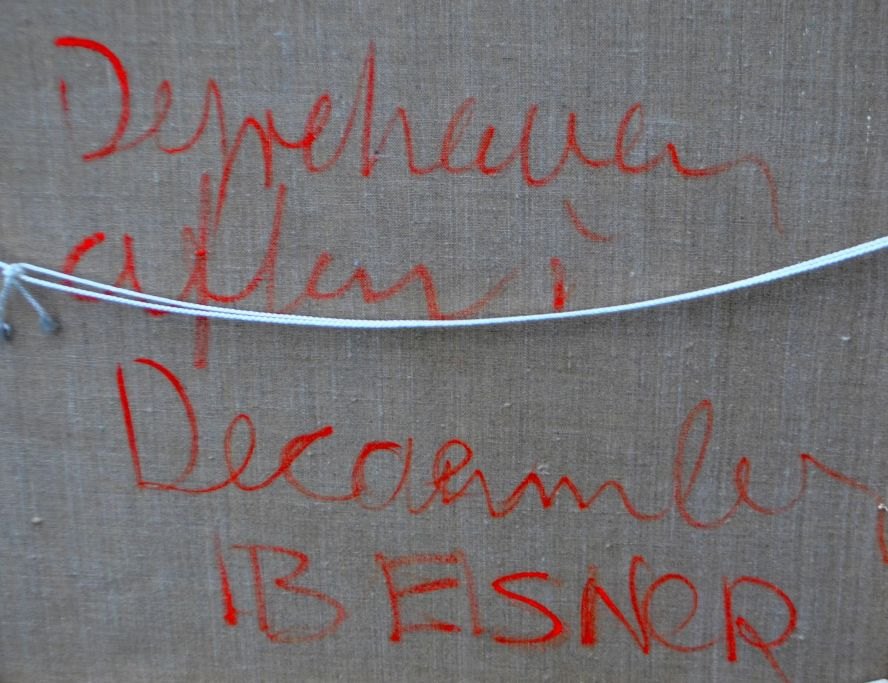 Dyrehaven
aften i
December
IB EISNeR